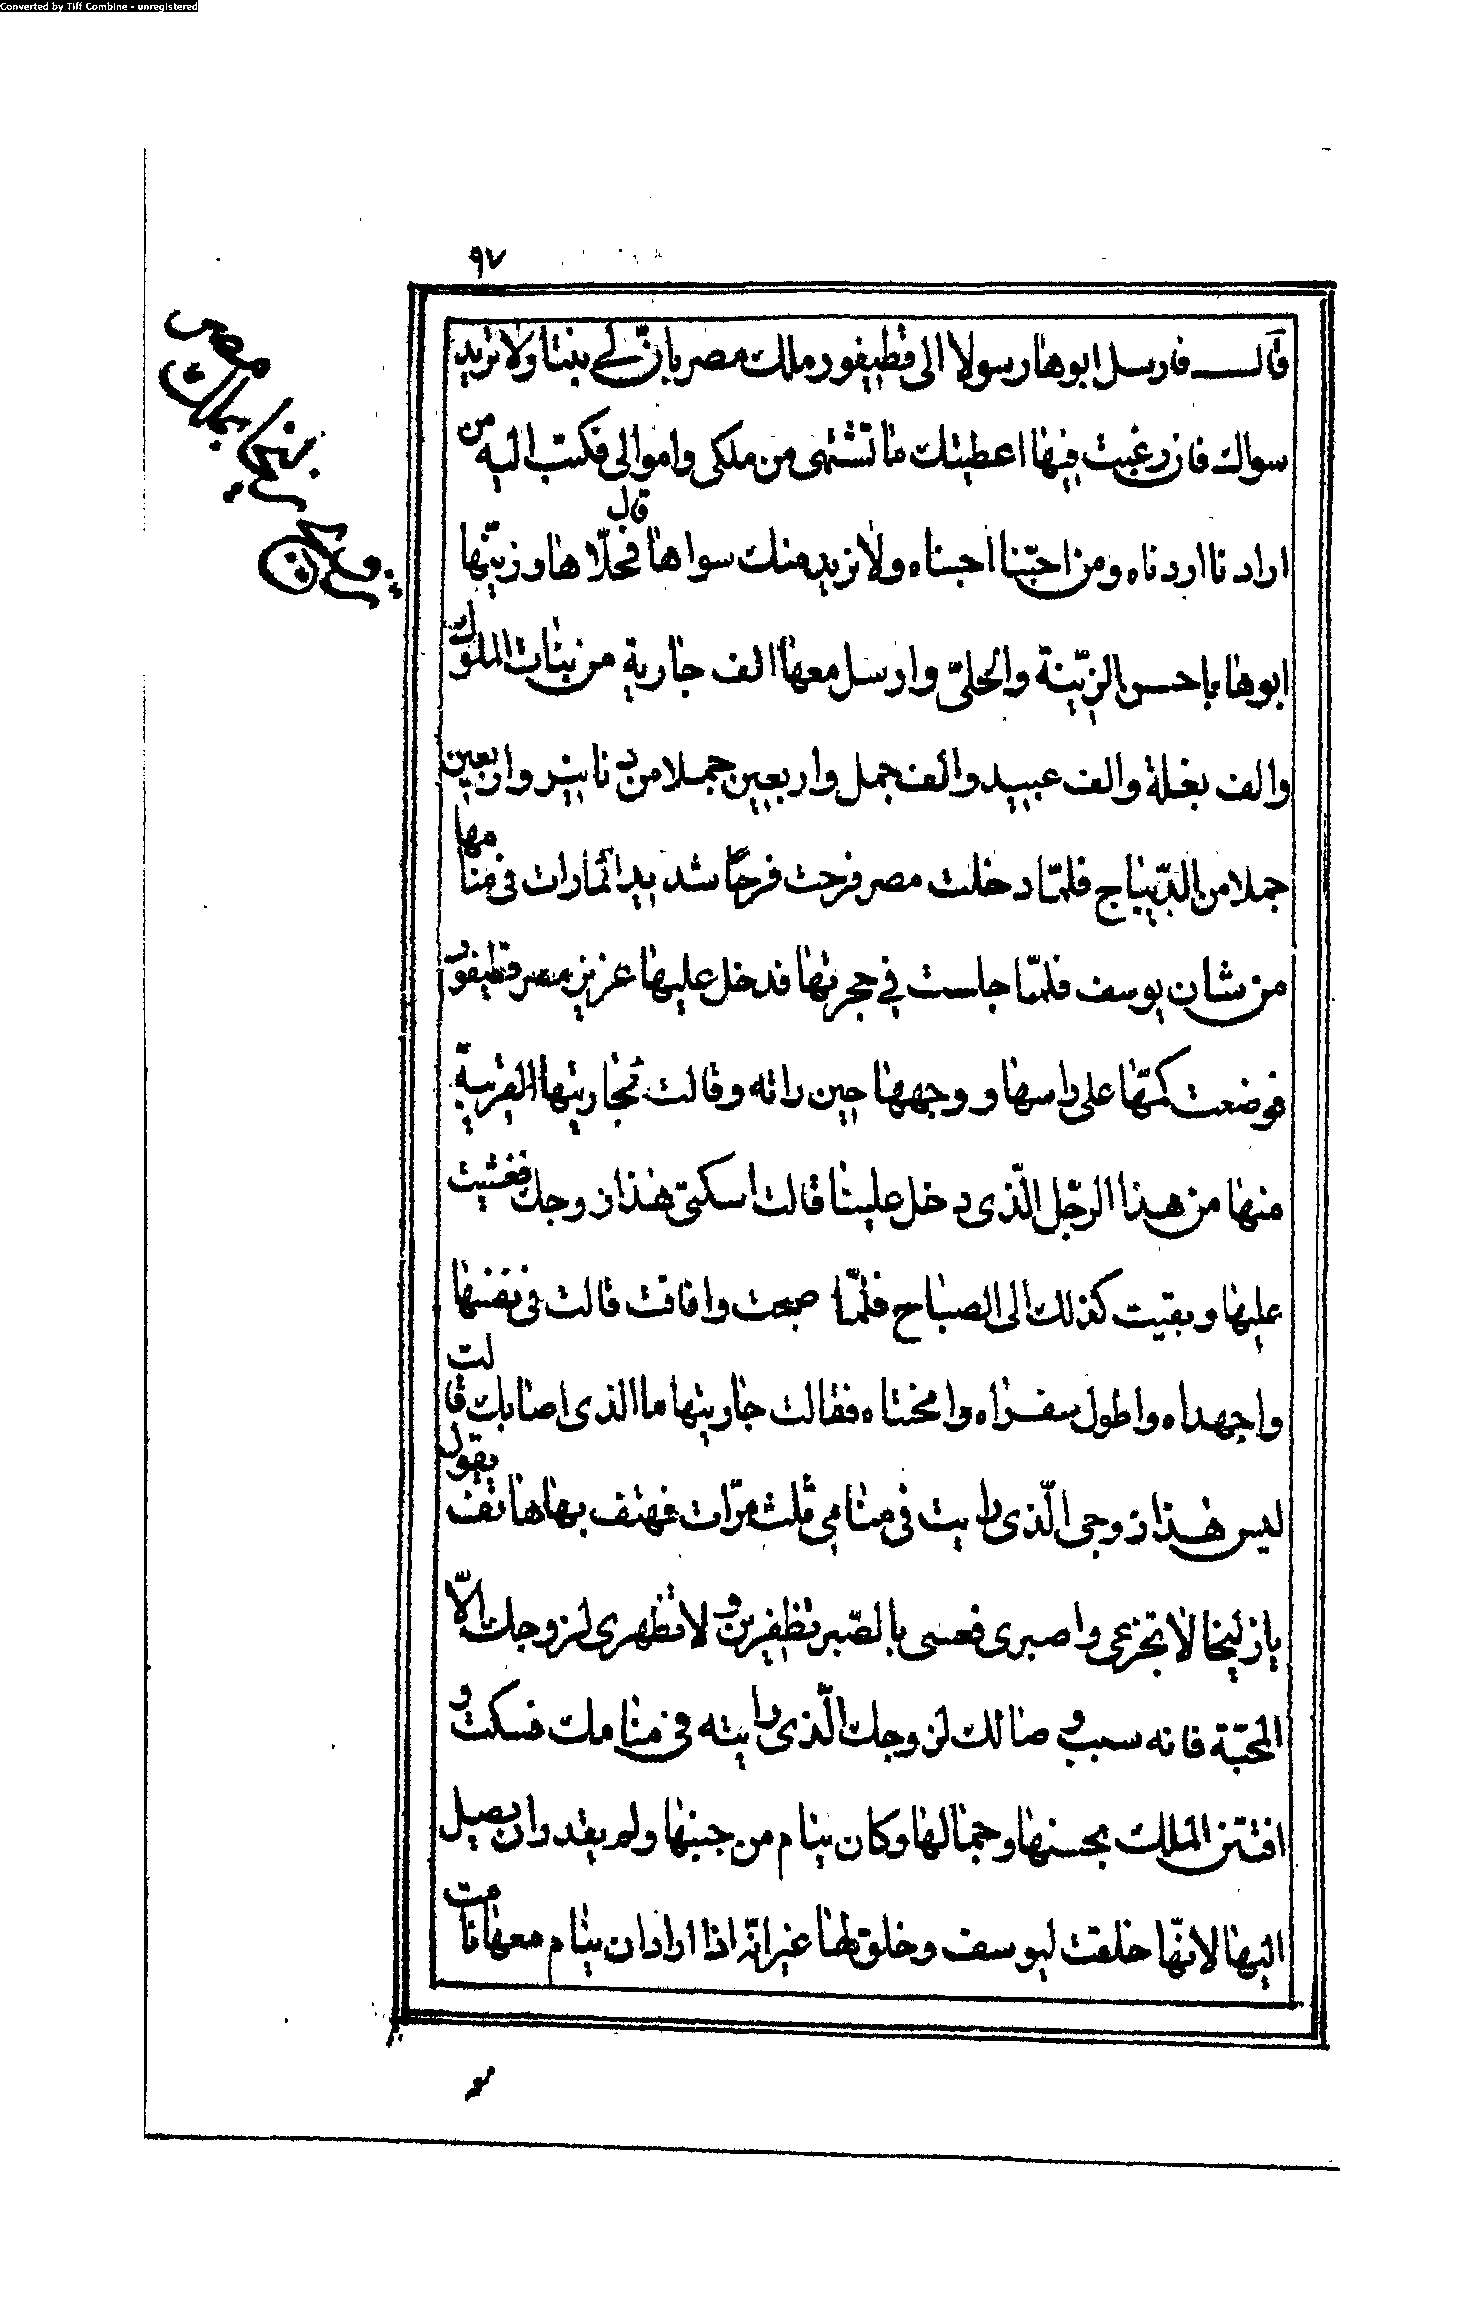 Converted by Tiff Combine - unregistered
٩٧
تزويج زليخا بملك مصر
قال فارسل ابوها رسولا الى قطيفور ملك مصر بان لي بنتا ولا نريد
سواك فان رغبت فيها اعطيتك ما تشتهى من ملكى واموالى فكتب اليه من
ارادنا اردناه ومن احبّنا احبناه ولا نريد منك سواها قال فحلّاها وزيّنها
ابوها باحسن الزّينة والحلىّ وارسل معها الف جارية من بنات الملوك
والف بغلة والف عبيد والف جمل واربعين جملا من دنانير واربعين
جملا من الدّيباج فلمّا دخلت مصر فرحت فرحا شديدا لما رات فى منامها
من شان يوسف فلمّا جلست في حجرتها فدخل عليها عزيز مصر قطيفور
فوضعت كمّها على راسها ووجهها حين راته وقالت لجاريتها القريبة
منها من هذا الرّجل الّذى دخل علينا قالت اسكتى هذا زوجك فغشيت
عليها وبقيت كذلك الى الصباح فلمّا صبحت وافاقت قالت فى نفسها
واجهداه واطول سفراه وامحنتاه فقالت جاريتها ما الذى اصابك قالت
ليس هذا زوجى الّذى رايت فى منامي ثلث مرّات فهتف بها هاتف يقول
يا زليخا لا تجزعى واصبرى فعسى بالصّبر تظفرين ولا تظهرى لزوجك الّا
المحبّة فانه سبب وصالك لزوجك الّذى رايته في منامك فسكت و
افتتن الملك بحسنها وجمالها وكان ينام من جنبها ولم يقدر ان يصل
اليها لانّها خلقت ليوسف وخلق لها غير انّه اذا اراد ان ينام معها نامت